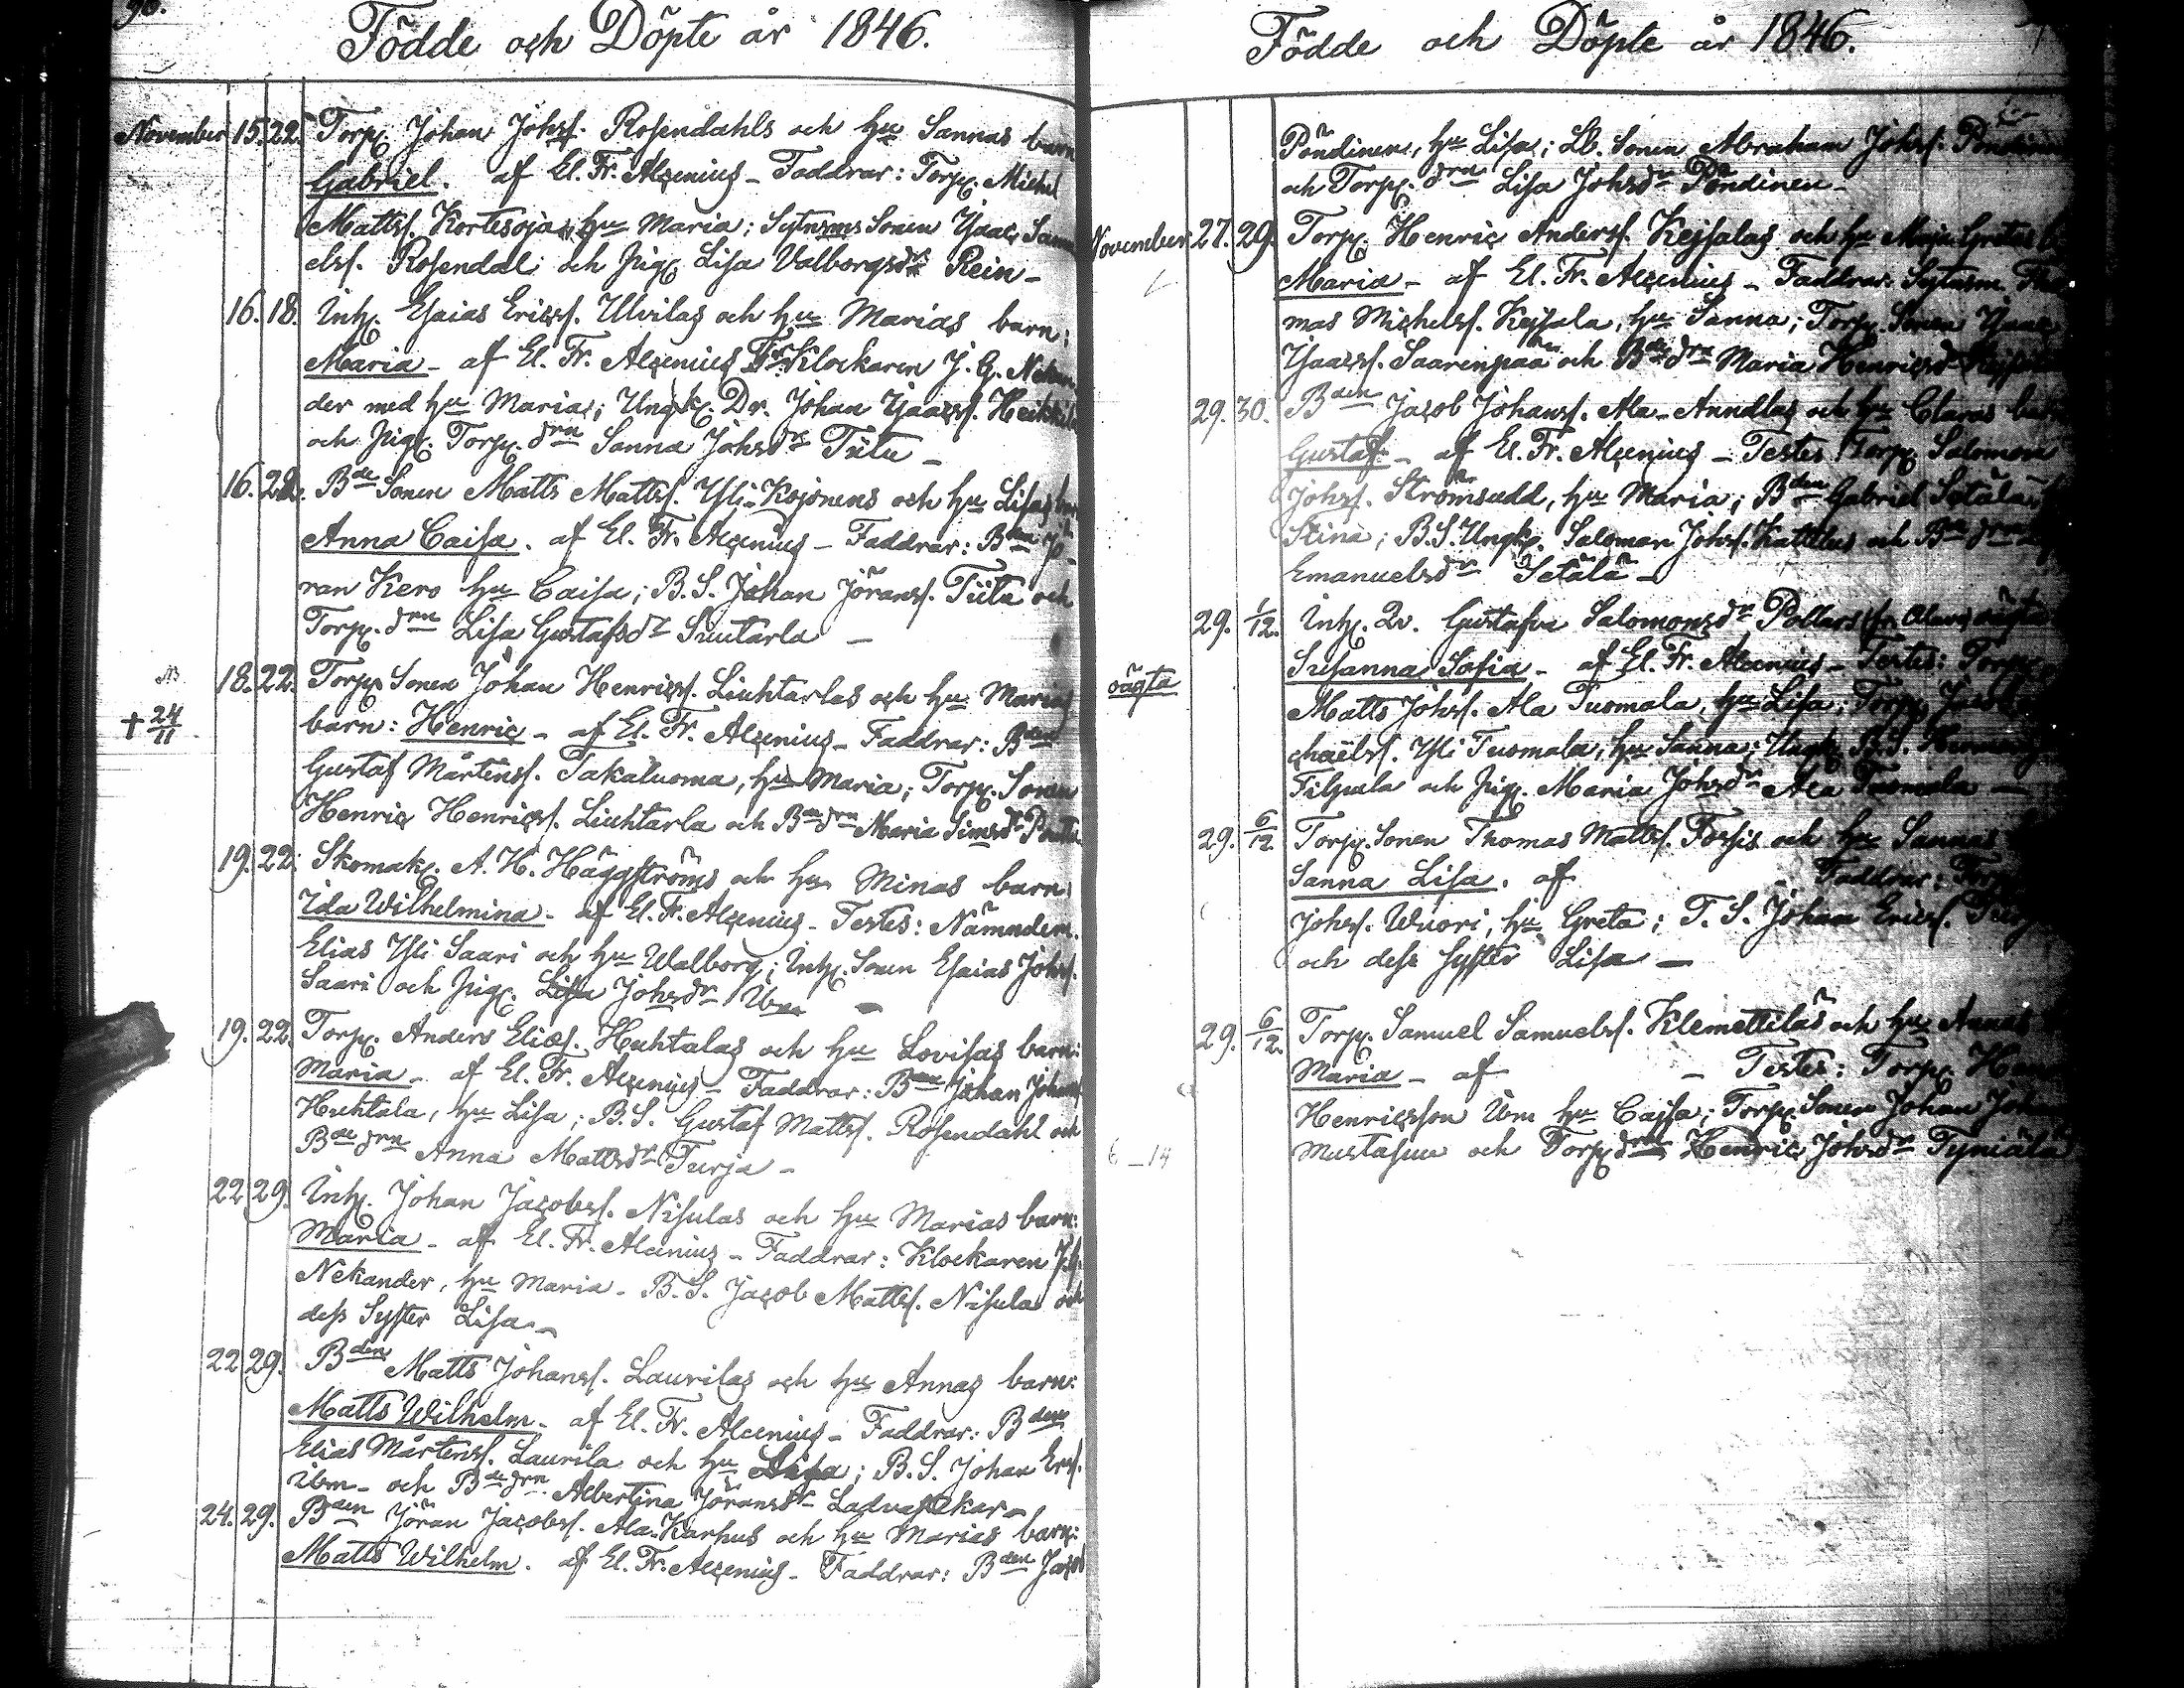 90.
Födde och Döpte år 1846.
November 15. 22. Torp. Johan Johsf. Rosendahls och hu Sannas barn
Gabriel. af El. Fr. Alcenius - Faddrar: Torp. Michel
Mattsf. Kortesoja, hu Maria; Sytnings Sonen Isaac Samu
elsf. Rosendal och Pig. Lisa Valborgsdr Rein -
16. 18. Inh. Esaias Ericsf. Ulvilas och hu Marias barn:
Maria - af El. Fr. Alcenius Fr Klockaren J. G. Nekan
der med hu Maria; Ungk. Dr. Johan Isaacsf. Heikkilä
och Pig. Torp. drn Sanna Johsdr Tiitu -
16. 22. Bde Sonen Matts Mattsf. Yli-Kojonens och hu Lisas bar
Anna Caisa. af El. Fr. Alcenius - Faddrar: Bden Jö
ran Kero hu Caisa; B. S. Johan Jöransf. Tiitu och
Torp. drn Lisa Gustafsdr Suutarla -
NB 18. 22. Torp. Sonen Johan Henricsf. Liuhtarlas och hu Marias
† 24/11 barn: Henric - af El. Fr. Alcenius - Faddrar: Bden
Gustaf Mårtensf. Takaluoma, hu Maria; Torp. Sonen
Henric Henricsf. Liuhtarla och Bde drn Maria Simsdr
19. 22. Skomak. A. H. Häggströms och hu Minas barn:
Ida Wilhelmina - af El. Fr. Alcenius - Testes: Nämndem.
Elias Yli Saari och hu Walborg; Inh. Sonen Esaias Johsf.
Saari och Pig. Lisa Johsdr Ibm -
19. 22. Torp. Anders Eliæs. Huhtalas och hu Lovisas barn:
Maria - af El. Fr. Alcenius - Faddrar: Bden Johan Johans
Huhtala, hu Lisa; B. S. Gustaf Mattsf. Rosendahl och
Bde drn Anna Mattsdr Turja -
22 29. Inh. Johan Jacobsf. Nisulas och hu Marias barn:
Maria - af El. Fr. Alcenius - Faddrar: Klockaren
Nekander, hu Maria - B. S. Jacob Mattsf. Nisula och
dess Syster Lisa -
22 29. Bden Matts Johansf. Laurilas och hu Annas barn:
Matts Wilhelm - af El. Fr. Alcenius - Faddrar: Bden
Elias Mårtensf. Laurila och hu Lisa; B. S. Johan Ersf.
Ibm - och Bde drn Albertina Jöransdr
24. 29. Bden Jöran Jacobsf. Ala-Karhus och hu Marias barn:
Matts Wilhelm. af El. Fr. Alcenius - Faddrar: Bden Jacob
Födde och Döpte år 1846.
Pöndinen, hu Lisa; Lb. Sonen Abraham Johsf. Pöndinen
och Torp. drn Lisa Johsdr Pöndinen -
November 27. 29. Torp. Henric Andersf. Kejsalas och hu Maja Gretas
Maria - af El. Fr. Alcenius - Faddrar: Sytnsm. Tho
mas Michelsf. Kejsala, hu Sanna; Torp. Sonen Isaac
Isaacsf. Saarenpää och Bde drn Maria Henricsdr
29. 30. Bden Jacob Johansf. Ala-Anndlas och hu Claras barn
Gustaf - af El. Fr. Alcenius - Testes Torp. Salomon
Johsf. Strömsudd, hu Maria; Bden Gabriel Setälä
Stina; B. S. Ungk. Salomon Johsf. Kattelus och Bde drn
Emanuelsdr Setälä -
29. 1/12. Inh. Qv. Gustafva Salomonsdr Pollars oägta
oägta Susanna Sofia - af El. Fr. Alcenius - Testes: Torp.
Matts Johsf. Ala Tuomala, hu Lisa; Torp.
chaëlsf. Yli Tuomala, hu Sanna; Ungk. B. S.
Filpula och Pig. Maria Johsdr Ala Tuomala -
29. 6/12 Torp. Sonen Thomas Mattsf. Forsis och hu Sannas
Sanna Lisa. af Faddrar: Torp
Johsf. Wuori, hu Greta; T. S. Johan Ericsf.
och dess syster Lisa -
29. 6/12. Torp. Samuel Samuelsf. Klemettiläs och hu Annas
Maria - af - Testes: Torp. Henr
Henricsson Ibm hu Cajsa; Torp. Sonen Johan
och Torp. drn Henric Johsdr Tyniälä
6 - 14